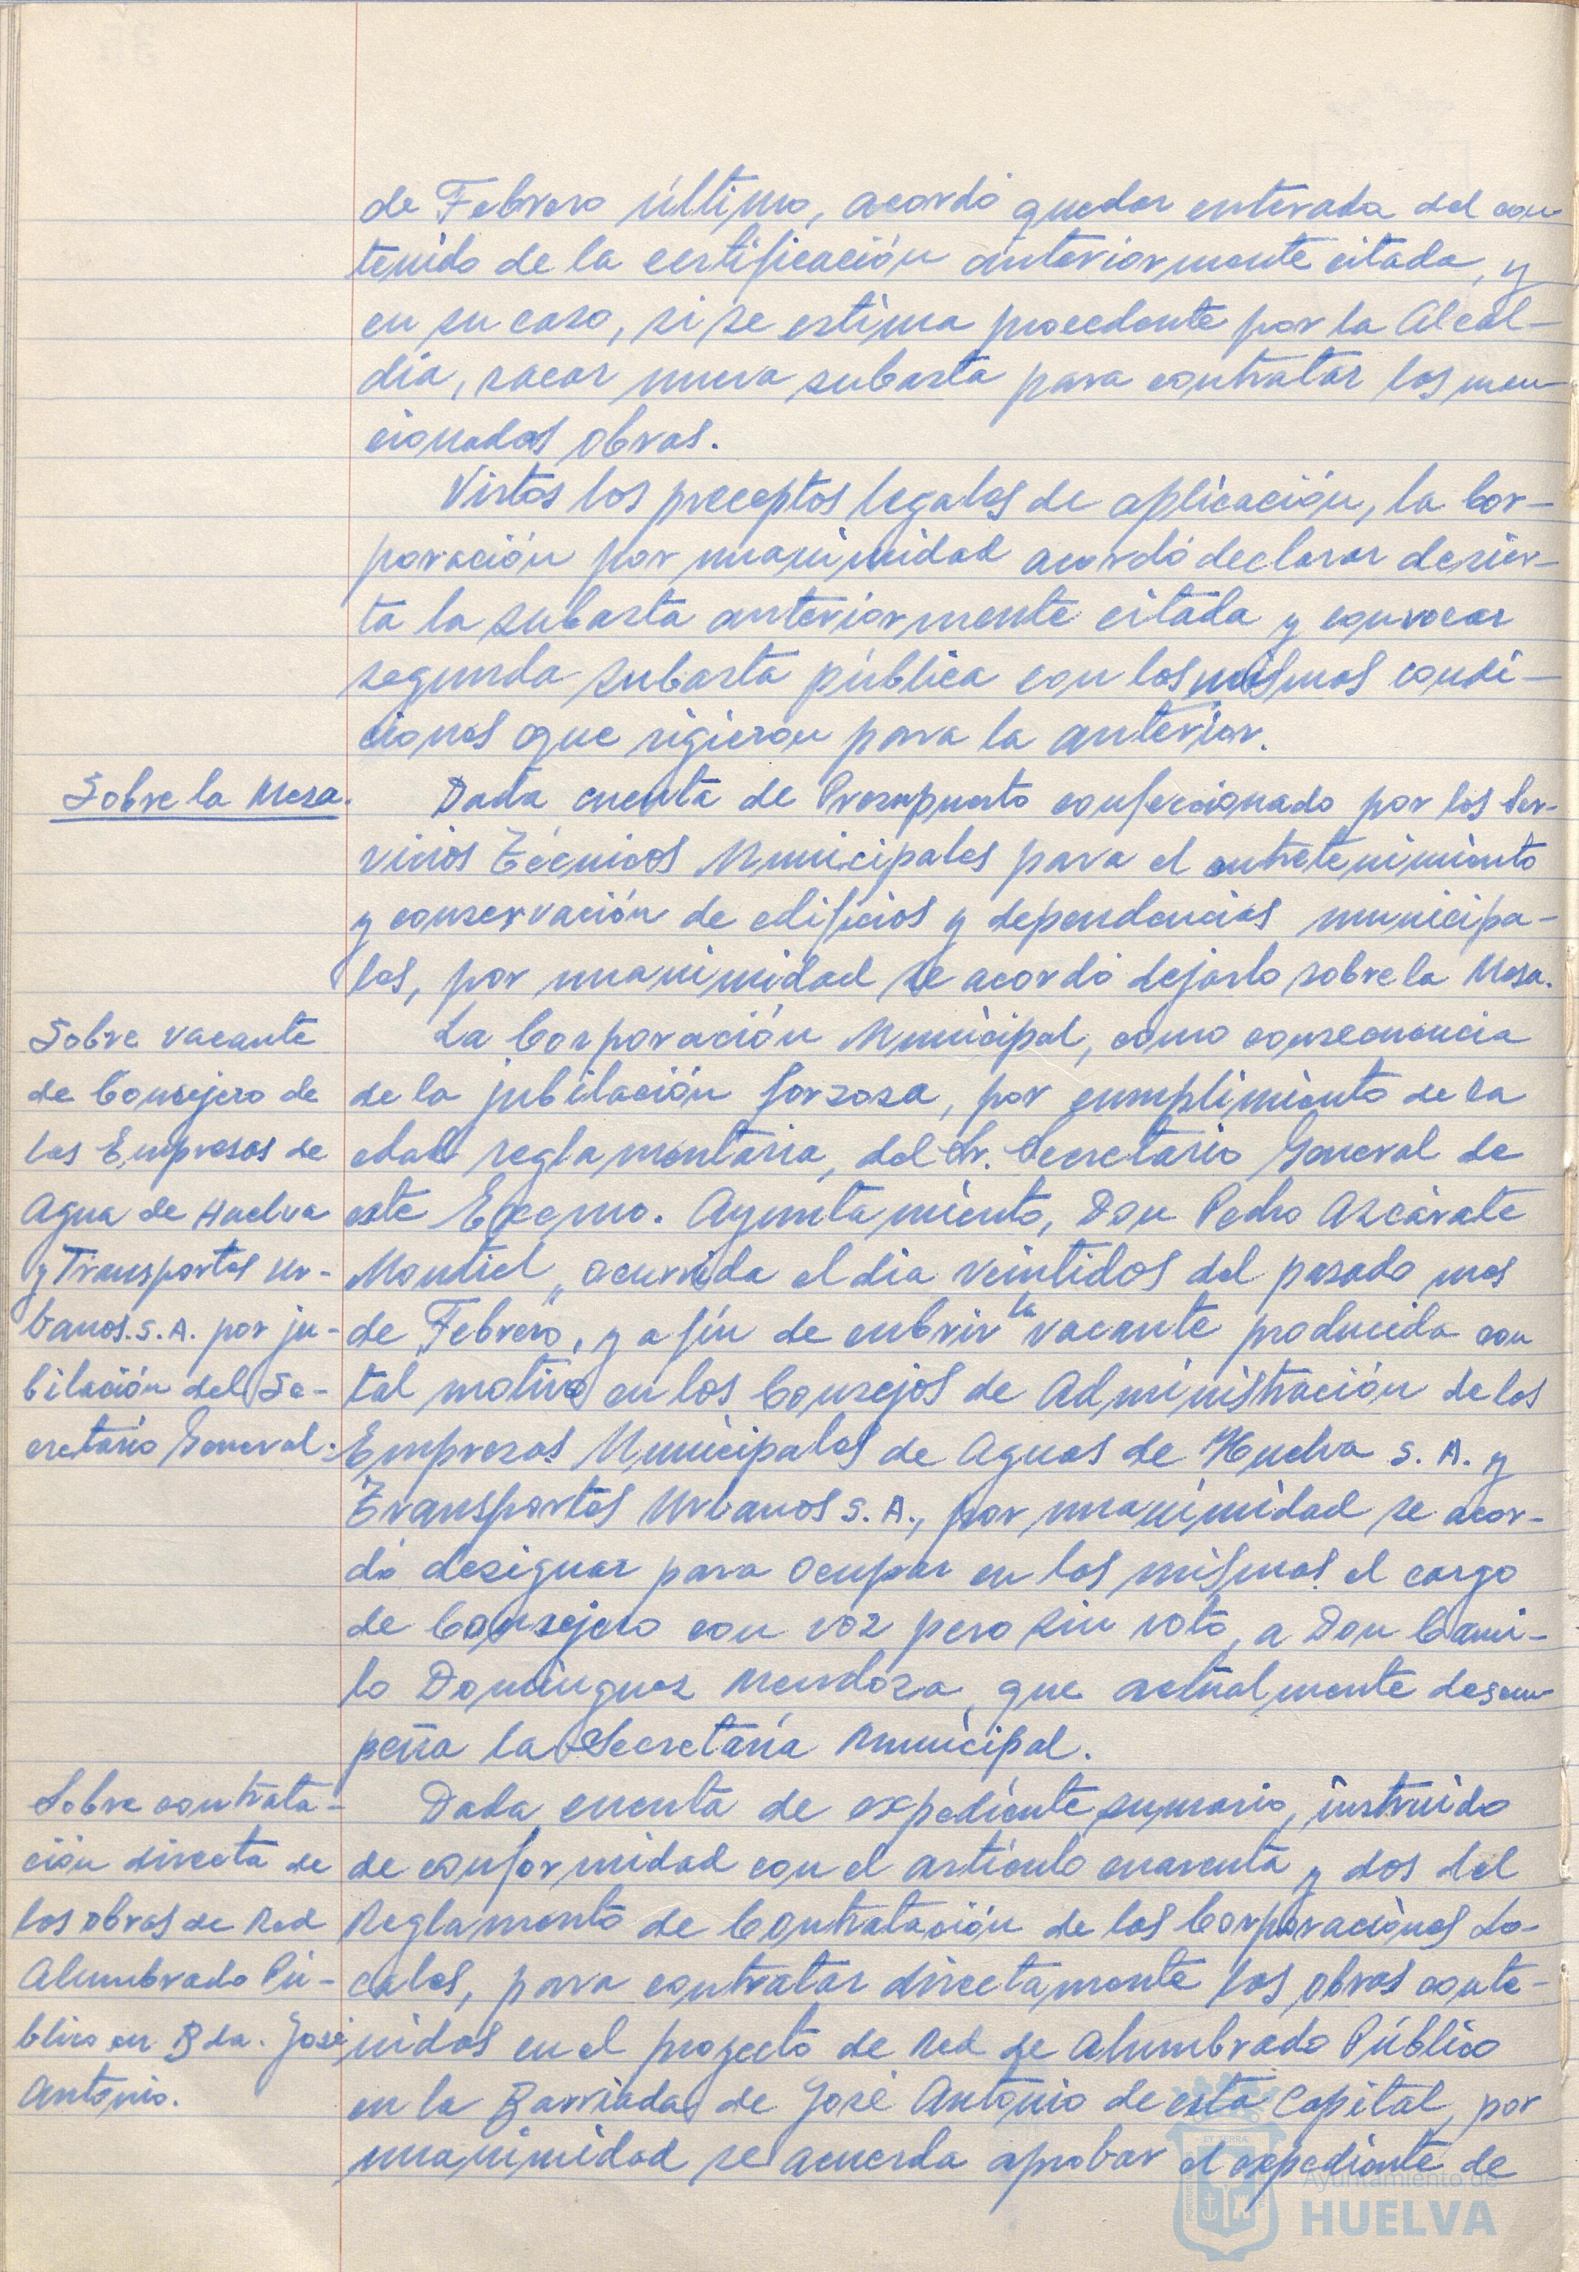 de Febrero último, acordó quedar enterada del con-
tenido de la certificación anteriormente citada, y
en su caso, si se estima procedente por la Alcal-
día, sacar nueva subasta para contratar las men-
cionadas obras.
Vistos los preceptos legales de aplicación, la Cor-
poración por unanimidad acordó declarar desier-
ta la subasta anteriormente citada y convocar
segunda subasta pública con las mismas condi-
ciones que rigieron para la anterior.
Sobre la Mesa.
Dada cuenta de Presupuesto confeccionado por los Ser-
vicios Técnicos Municipales para el entretenimiento
y conservación de edificios y dependencias municipa-
les, por unanimidad se acordó dejarlo sobre la Mesa.
Sobre vacante
de Consejero de
las Empresas de
Agua de Huelva
y Transportes Ur-
banos S.A. por ju-
bilación del Se-
cretario General.
La Corporación Municipal, como consecuencia
de la jubilación forzosa, por cumplimiento de la
edad reglamentaria, del Sr. Secretario General de
este Excmo. Ayuntamiento, Don Pedro Azcárate
Montiel, ocurrida el día veintidos del pasado mes
de Febrero, y a fín de cubrir la vacante producida con
tal motivo en los Consejos de Administración de las
Empresas Municipales de Aguas de Huelva S.A. y
Transportes Urbanos S.A., por unanimidad se acor-
dó designar para ocupar en los mismos el cargo
de Consejero con voz pero sin voto, a Don Cami-
lo Domínguez Mendoza, que actualmente desem-
peña la Secretaría Municipal.
Sobre contrata-
ción directa de
las obras de Red
Alumbrado Pú-
blico en Bda. José
Antonio.
Dada cuenta de expediente sumario, instruido
de conformidad con el artículo cuarenta y dos del
Reglamento de Contratación de las Corporaciones Lo-
cales, para contratar directamente las obras conte-
nidas en el proyecto de Red de Alumbrado Público
en la Barriada de José Antonio de esta Capital, por
unanimidad se acuerda aprobar el expediente de
Ayuntamiento de
HUELVA